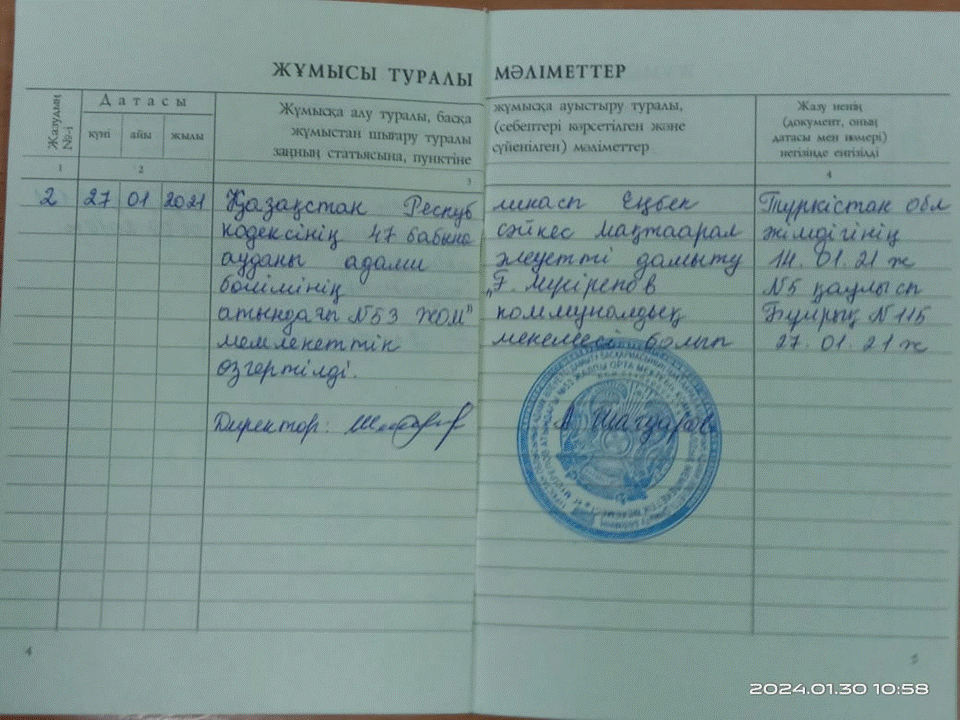 ЖҰМЫСЫ ТУРАЛЫ МӘЛІМЕТТЕР
Жазудың №-і
Датасы
күні айы жылы
Жұмысқа алу туралы, басқа жұмысқа ауыстыру туралы,
жұмыстан шығару туралы (себептері көрсетілген және
заңның статьясына, пунктіне сүйенілген) мәліметтер
Жазу ненің
(документ, оның
датасы мен номері)
негізінде енгізілді
1 2 3 4
2 27 01 2021 Қазақстан Республикасы Еңбек Түркістан обл
кодексінің 47 бабына сәйкес Мақтаарал әкімдігінің
ауданы адами әлеуетті дамыту 14.01.21 ж
бөлімінің „Ғ. Мүсірепов №5 қаулысы
атындағы №53 ЖОМ" коммуналдық Бұйрық №115
мемлекеттік мекемесі болып 27.01.21 ж
өзгертілді.
Директор: А. Шагуаров
4 5
2024.01.30 10:58